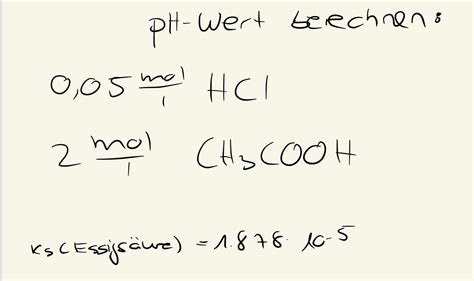 pH-Wert berechnen:
0,05 mol/l HCl
2 mol/l CH₃COOH
Ks (Essigsäure) = 1.878 · 10-5